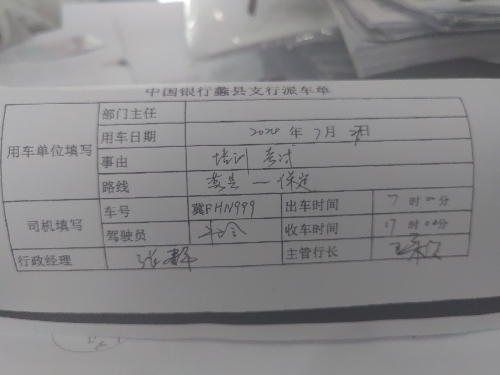 中国银行蠡县支行派车单
用车单位填写
部门主任
用车日期 2024 年 7 月 日
事由 培训 考试
路线 蠡县 — 保定
司机填写
车号 冀FHN999 出车时间 7 时 00 分
驾驶员 收车时间 17 时 00 分
行政经理 张 主管行长 王